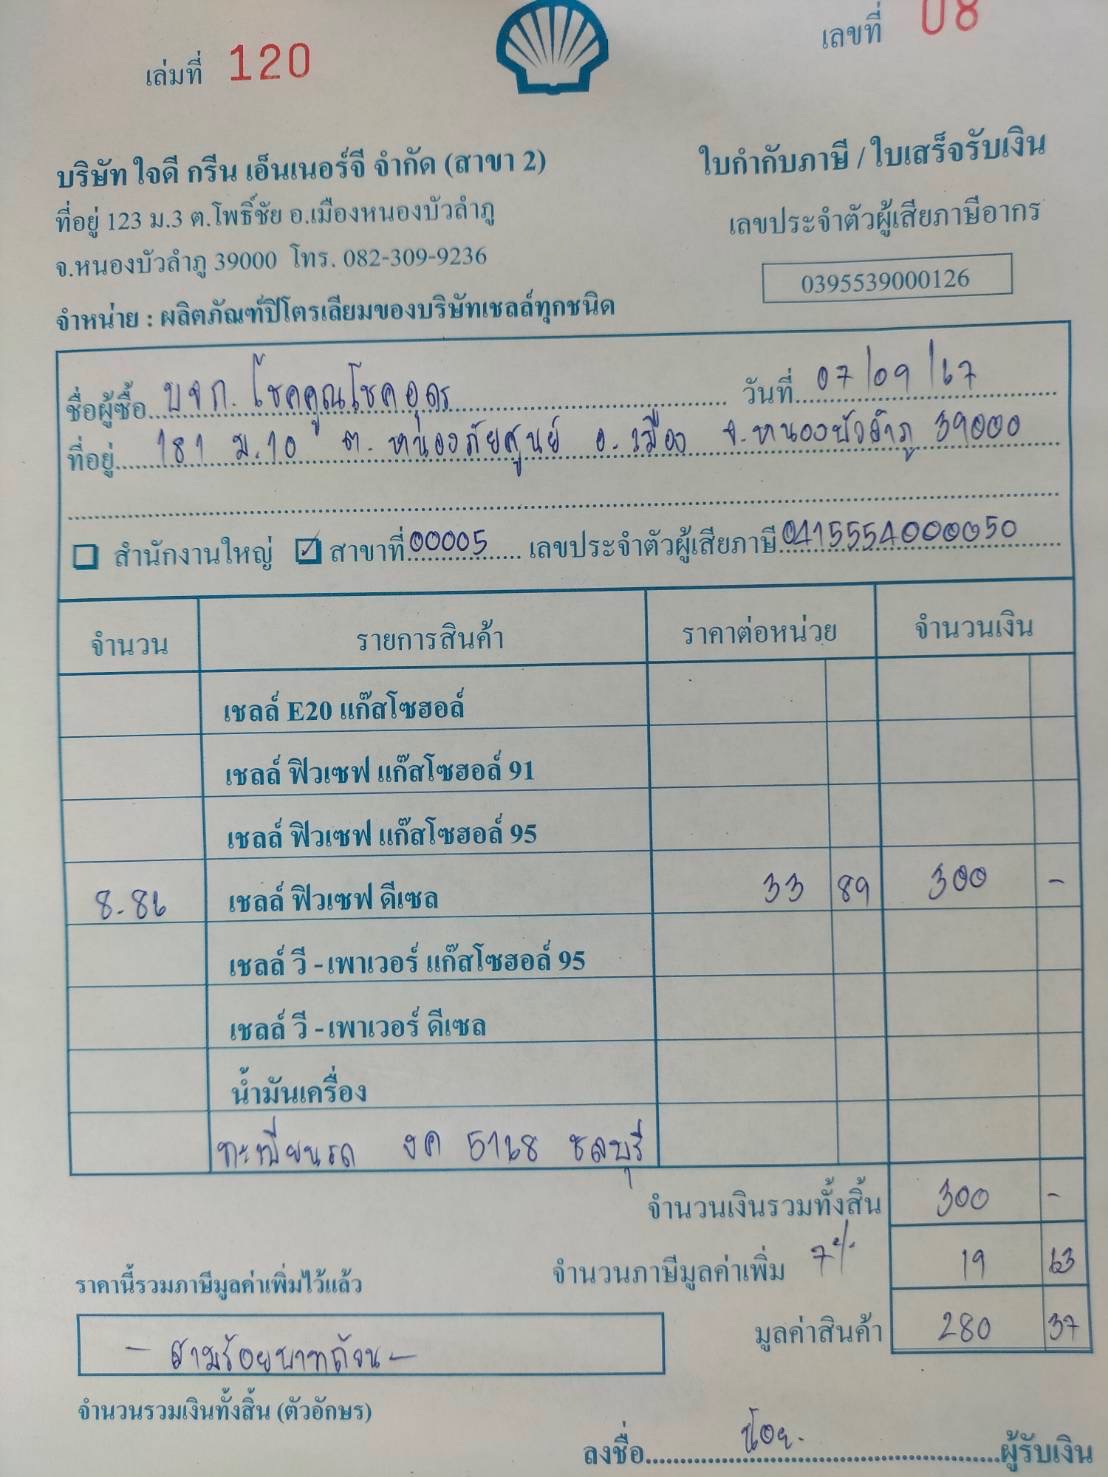 เล่มที่ 120
เลขที่ 08
บริษัท ใจดี กรีน เอ็นเนอร์จี จำกัด (สาขา 2)
ใบกำกับภาษี / ใบเสร็จรับเงิน
ที่อยู่ 123 ม.3 ต.โพธิ์ชัย อ.เมืองหนองบัวลำภู
เลขประจำตัวผู้เสียภาษีอากร
จ.หนองบัวลำภู 39000 โทร. 082-309-9236
0395539000126
จำหน่าย : ผลิตภัณฑ์ปิโตรเลียมของบริษัทเชลล์ทุกชนิด
ชื่อผู้ซื้อ บจก. โชคคูณโชคอุดร วันที่ 07/09/67
ที่อยู่ 181 ม.10 ต. หนองภัยศูนย์ อ. เมือง จ. หนองบัวลำภู 39000
สำนักงานใหญ่ สาขาที่ 00005 เลขประจำตัวผู้เสียภาษี 0415554000050
จำนวน รายการสินค้า ราคาต่อหน่วย จำนวนเงิน
เชลล์ E20 แก๊สโซฮอล์
เชลล์ ฟิวเซฟ แก๊สโซฮอล์ 91
เชลล์ ฟิวเซฟ แก๊สโซฮอล์ 95
8.86 เชลล์ ฟิวเซฟ ดีเซล 33 89 300 -
เชลล์ วี - เพาเวอร์ แก๊สโซฮอล์ 95
เชลล์ วี - เพาเวอร์ ดีเซล
น้ำมันเครื่อง
ทะเบียนรถ งค 5168 ชลบุรี
จำนวนเงินรวมทั้งสิ้น 300 -
จำนวนภาษีมูลค่าเพิ่ม 7% 19 63
ราคานี้รวมภาษีมูลค่าเพิ่มไว้แล้ว
มูลค่าสินค้า 280 37
- สามร้อยบาทถ้วน -
จำนวนรวมเงินทั้งสิ้น (ตัวอักษร)
ลงชื่อ น้อย. ผู้รับเงิน